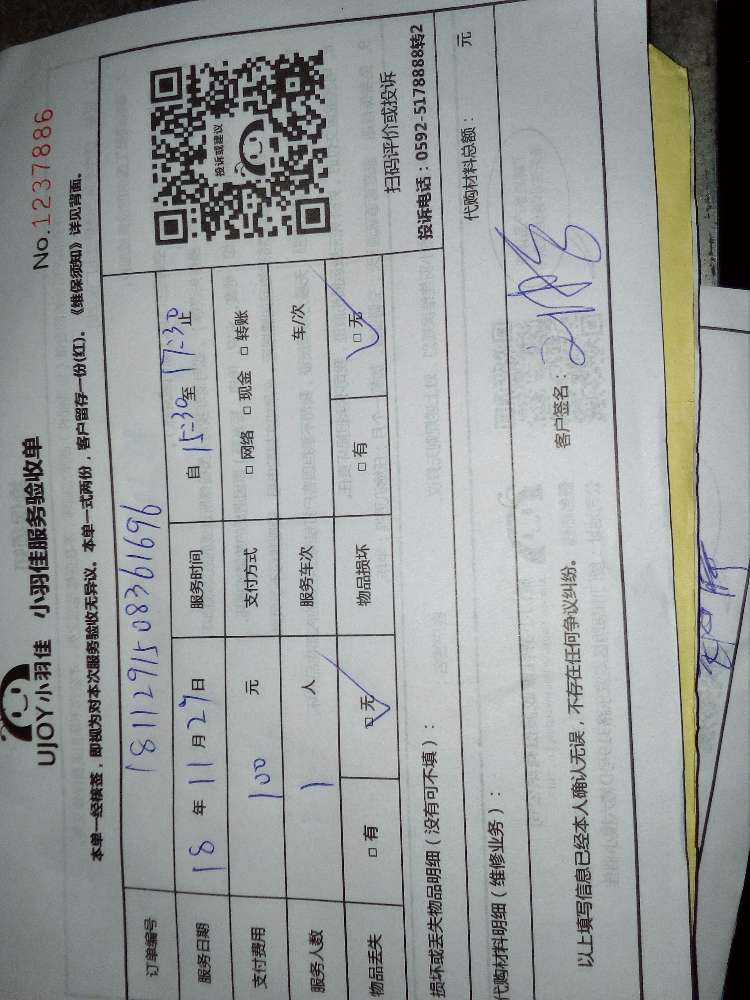 UJOY小羽佳 小羽佳服务验收单
No.1237886
本单一经核签，即视为对本次服务验收无异议。本单一式两份，客户留存一份(红)。《维保须知》详见背面。
订单编号 1811291508361696
服务日期 18 年 11 月 29 日 服务时间 自 15:30 至 17:30 止
支付费用 100 元 支付方式 □ 网络 □ 现金 □ 转账
服务人数 1 人 服务车次 车/次
物品丢失 □ 有 □ 无 ✓ 物品损坏 □ 有 □ 无 ✓
投诉或建议
扫码评价或投诉
投诉电话：0592-5178888转2
损坏或丢失物品明细（没有可不填）：
代购材料明细（维修业务）： 代购材料总额： 元
以上填写信息已经本人确认无误，不存在任何争议纠纷。 客户签名：